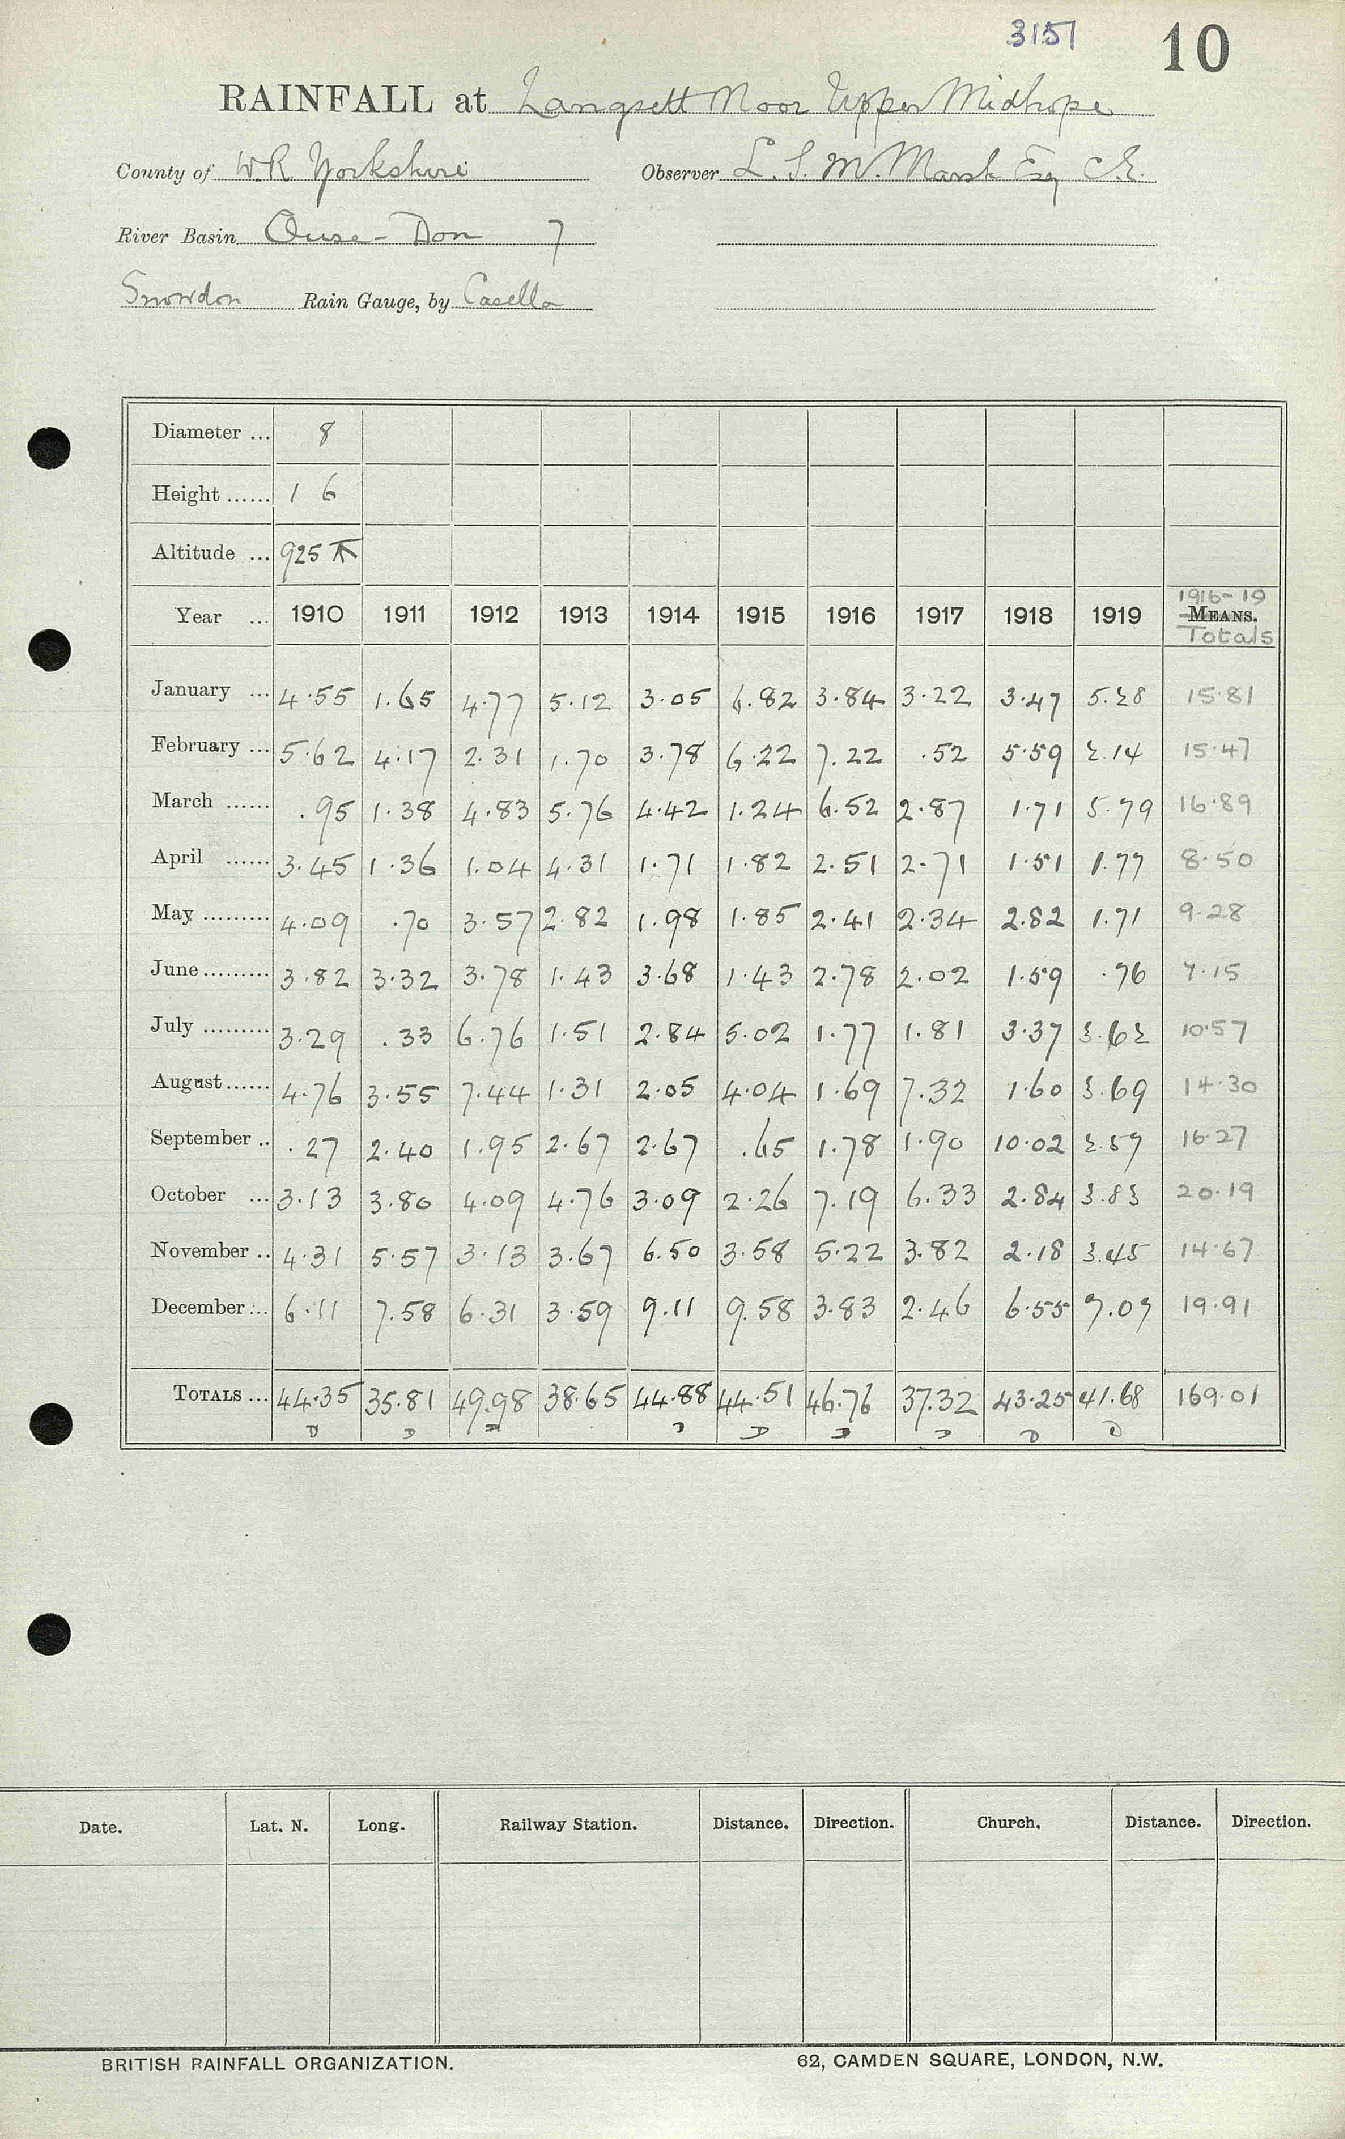 3151 10
RAINFALL at Langsett Moor Upper Midhope
County of W.R Yorkshire Observer L. S. M. Marsh Esq C.E.
River Basin Ouse - Don 7
Snowdon Rain Gauge, by Casella
Diameter ... 8
Height ...... 1 6
Altitude ... 925
1916-19
Year ... 1910 1911 1912 1913 1914 1915 1916 1917 1918 1919 MEANS.
Totals
January ... 4.55 1.65 4.77 5.12 3.05 6.82 3.84 3.22 3.47 5.28 15.81
February ... 5.62 4.17 2.31 1.70 3.78 6.22 7.22 .52 5.59 2.14 15.47
March ...... .95 1.38 4.83 5.76 4.42 1.24 6.52 2.87 1.71 5.79 16.89
April ...... 3.45 1.36 1.04 4.31 1.71 1.82 2.51 2.71 1.51 1.77 8.50
May ......... 4.09 .70 3.57 2.82 1.98 1.85 2.41 2.34 2.82 1.71 9.28
June ......... 3.82 3.32 3.78 1.43 3.68 1.43 2.78 2.02 1.59 .76 7.15
July ......... 3.29 .33 6.76 1.51 2.84 5.02 1.77 1.81 3.37 3.62 10.57
August ...... 4.76 3.55 7.44 1.31 2.05 4.04 1.69 7.32 1.60 3.69 14.30
September .. .27 2.40 1.95 2.67 2.67 .65 1.78 1.90 10.02 2.57 16.27
October ... 3.13 3.80 4.09 4.76 3.09 2.26 7.19 6.33 2.84 3.83 20.19
November .. 4.31 5.57 3.13 3.67 6.50 3.58 5.22 3.82 2.18 3.45 14.67
December ... 6.11 7.58 6.31 3.59 9.11 9.58 3.83 2.46 6.55 7.07 19.91
TOTALS ... 44.35 35.81 49.98 38.65 44.88 44.51 46.76 37.32 43.25 41.68 169.01
Date. Lat. N. Long. Railway Station. Distance. Direction. Church. Distance. Direction.
BRITISH RAINFALL ORGANIZATION. 62, CAMDEN SQUARE, LONDON, N.W.